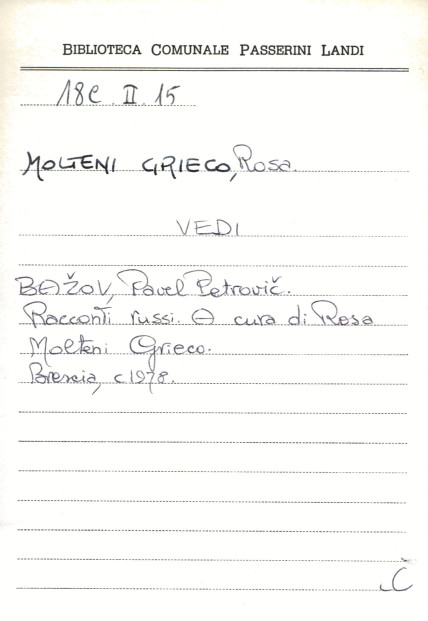 BIBLIOTECA COMUNALE PASSERINI LANDI
18C. II. 15
MOLTENI GRIECO, Rosa.
VEDI
BAŽOV, Pavel Petrovič.
Racconti russi. A cura di Rosa
Molteni Grieco.
Brescia, c1978.
Č